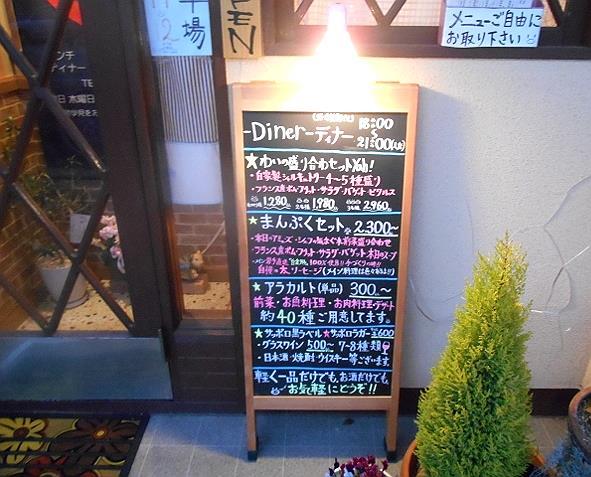 場
PEN
メニューご自由に
お取り下さい
ランチ
ディナー
木曜日
-Diner-ディナー 18:00
~
21:00
★わいわい盛り合わせセット
・自家製シャルキュトリー4~5種盛り
・フランス産ポムフリット・サラダ・バゲット・ピクルス
1,280 1,980 2,960
★まんぷくセット 2,300~
フランス産ポムフリット・サラダ・バゲット・本日のスープ
自慢の太いソーセージ(メイン料理は色々あるよ!!)
★アラカルト(単品) 300~
前菜・お魚料理・お肉料理・デザート
約40種ご用意してます。
★サッポロ黒ラベル★サッポロラガー 600
・グラスワイン 500~ 7-8種類
・日本酒・焼酎・ウイスキー等ございます。
軽く一品だけでも、お酒だけでも、
お気軽にどうぞ!!